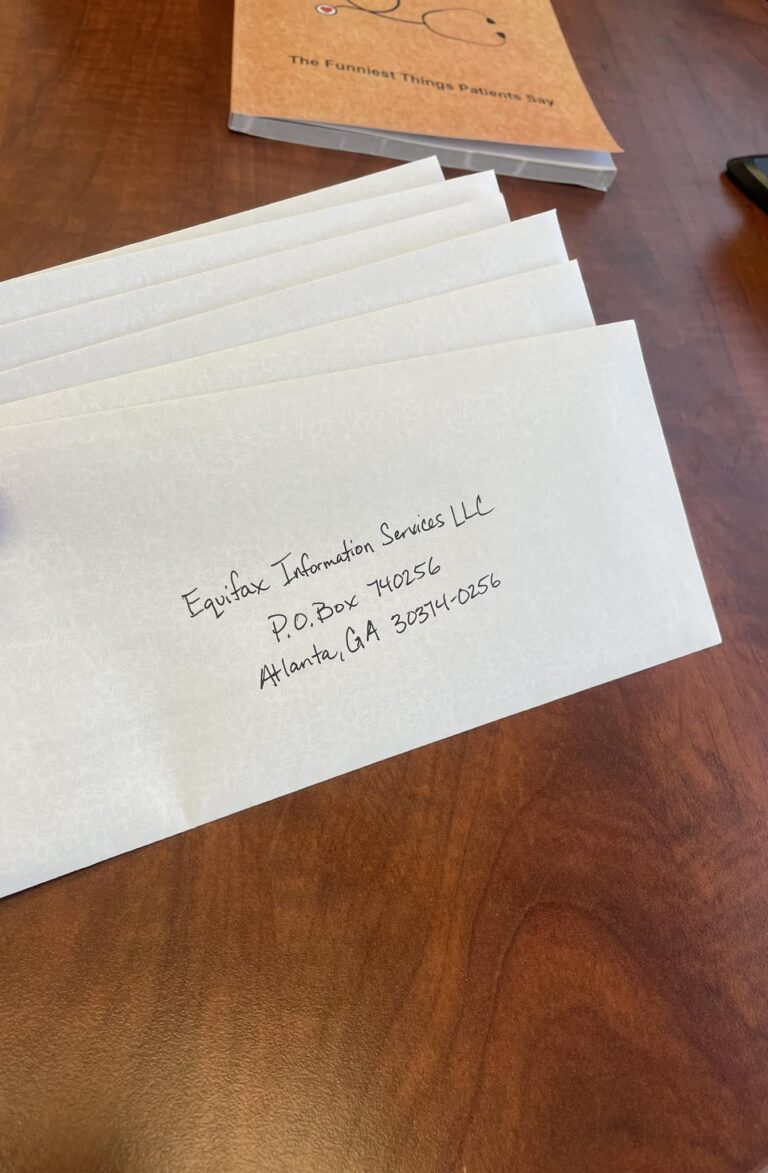 The Funniest Things Patients Say
Equifax Information Services LLC
P.O. Box 740256
Atlanta, GA 30374-0256